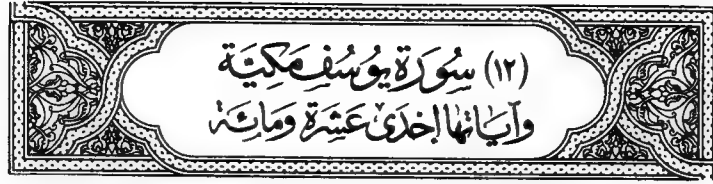 (١٢) سُورَة يُوسُفَ مَكِيَّة
وَآيَاتُهَا إِحْدَىٰ عَشْرَةَ وَمَائِة